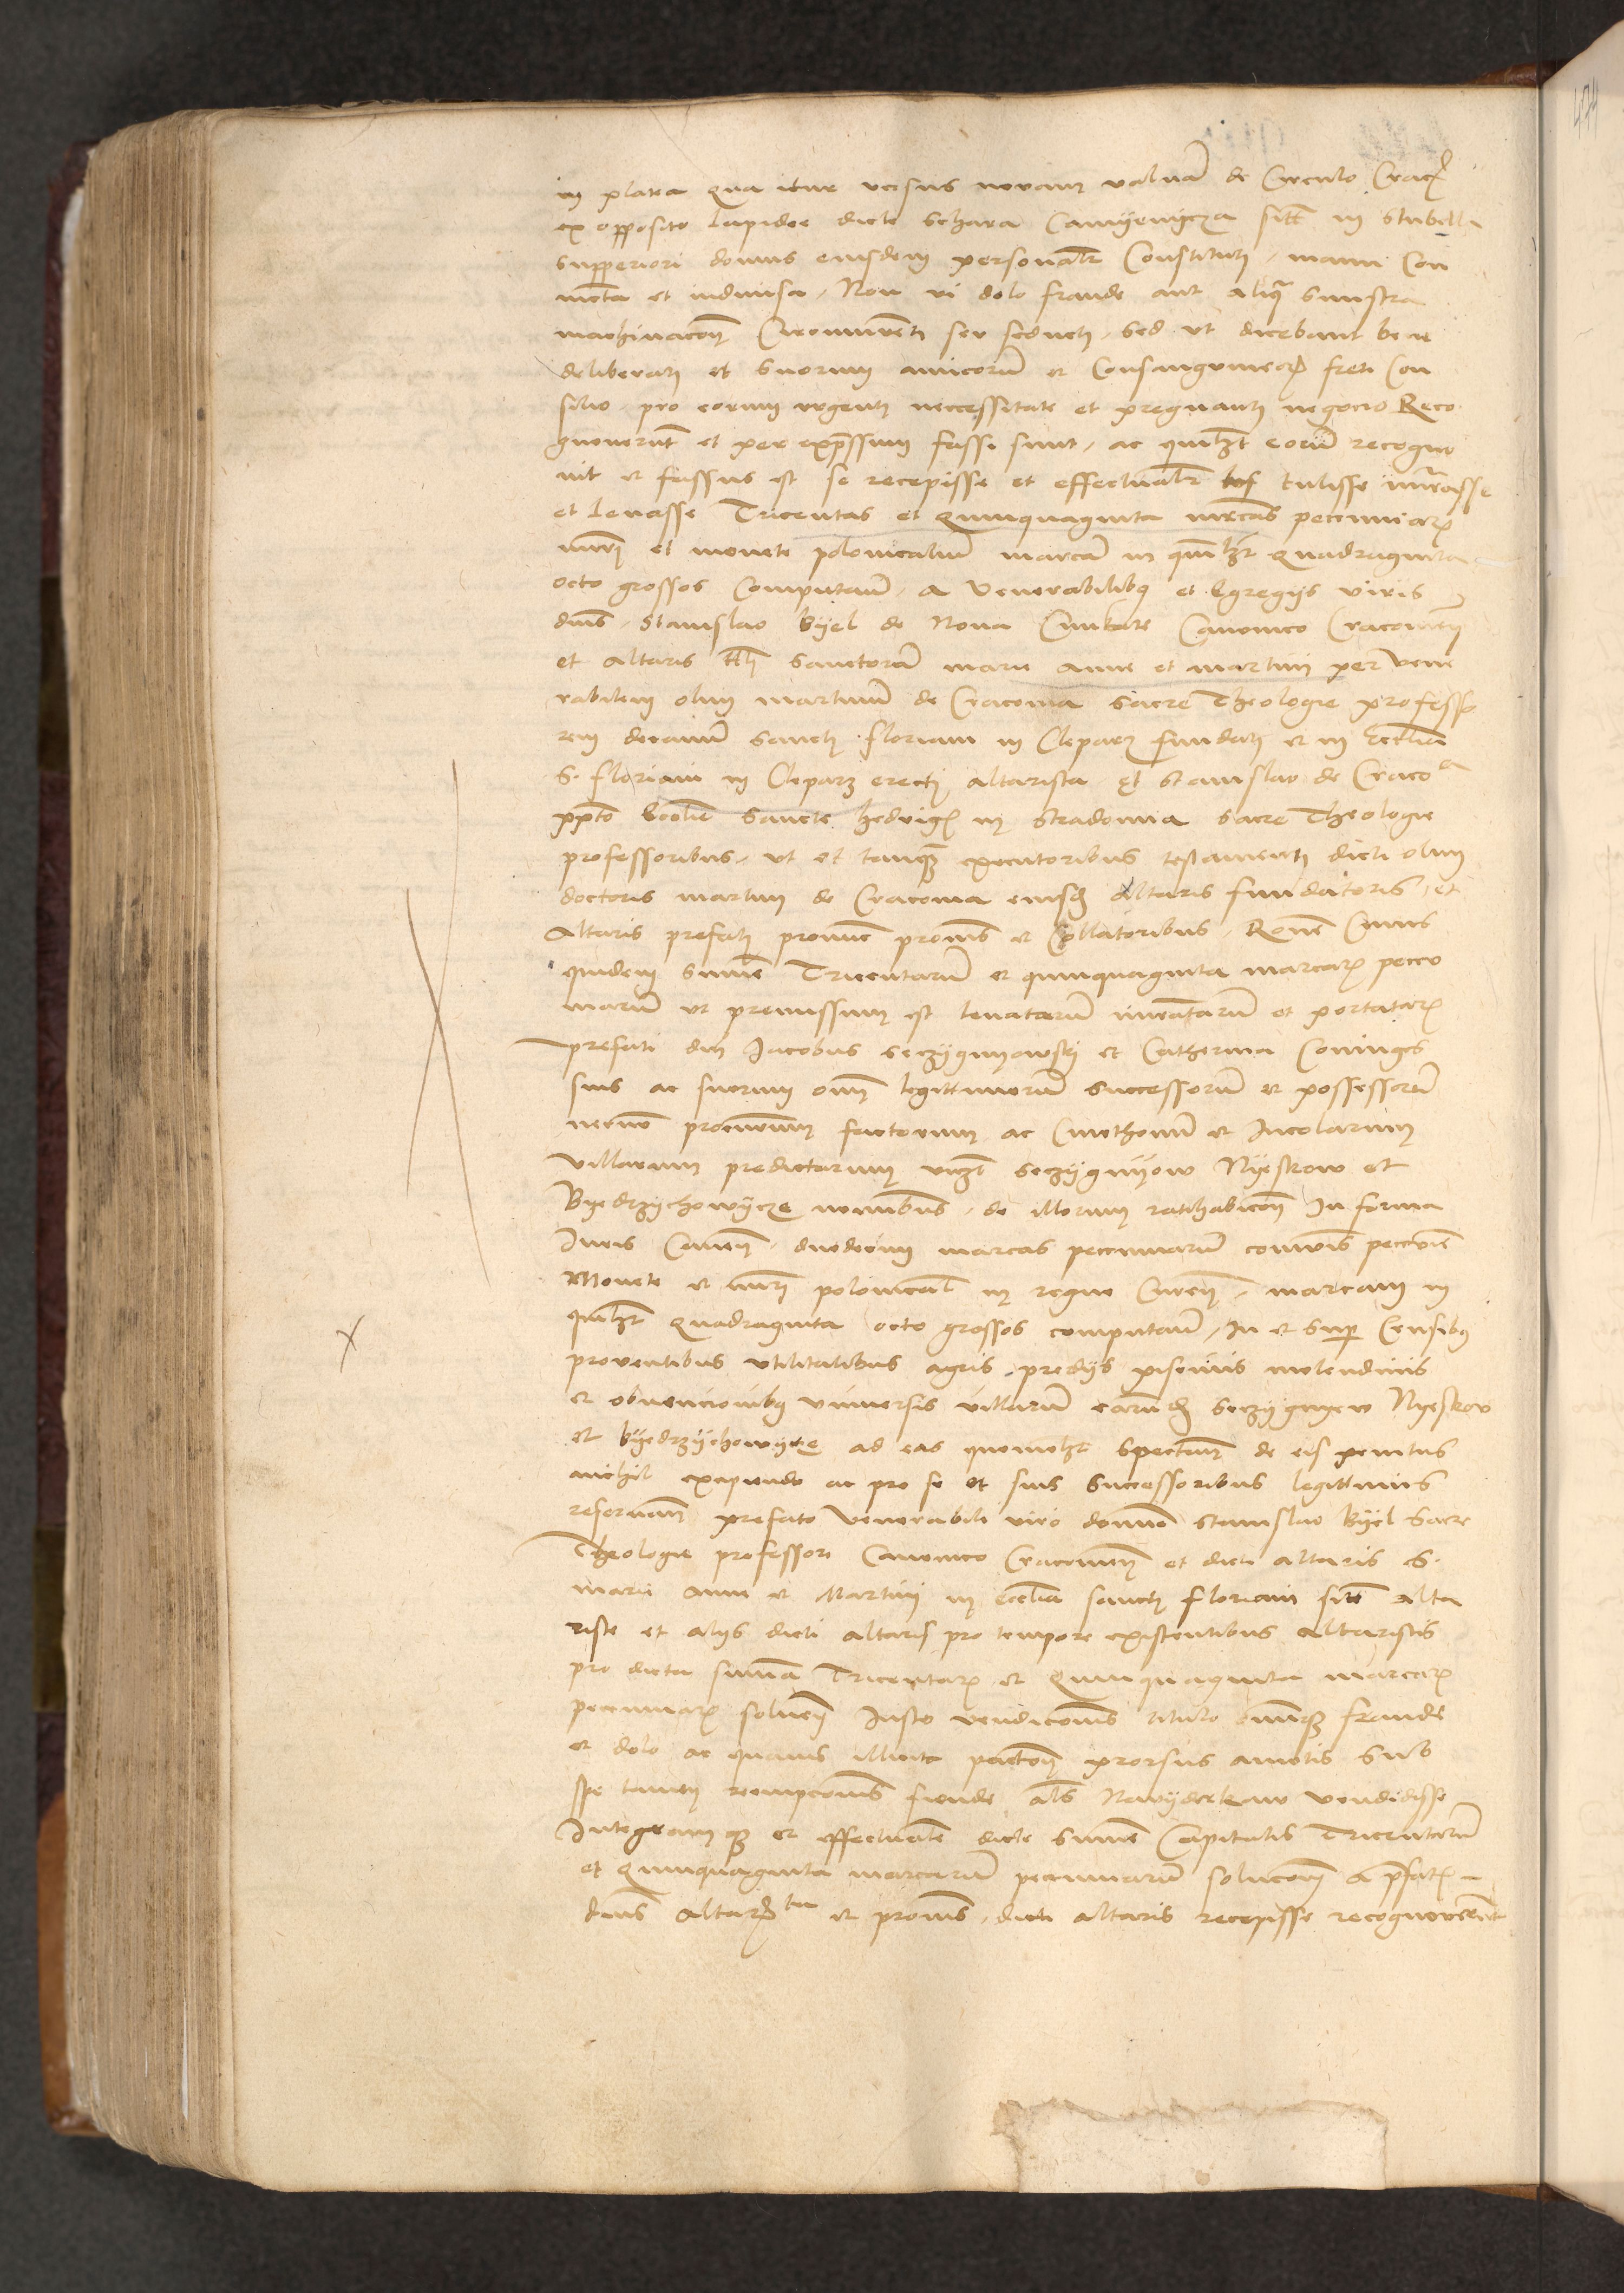 in platea qua itur versus novam valvā de Circulo Crac
ex opposito lapidee dicte Schara Camyenycza sitt in stubella
superiori domus eiusdem personalr Constituti, manu Con
iuncta et indivisa, Non vi dolo fraude aut aliqua sinistra
machinacoē Circumventi seu seducti, sed ut dicebant bene
deliberati et suorum amicorū et Consanguineoꝝ freti Con
silio, pro eorum urgenti neccessitate et pregnanti negocio Reco
gnoverūt et per expressum fassi sunt, ac quilibꝫt eorū recogno
vit et fassus est se recepisse et effectualr tulisse nūrasse
et levasse Tricentas et Quinquaginta mrcas pecuniaꝝ
nūri et monete polonicaliū marcā in qūlibꝫt Quadraginta
octo grossos Computan̄, a Venerabilibꝰ et Egregijs viris
dnis, Stanislao Byel de Nova Civitate Canonico Cracovien̄
et altaris ttli sanctorū marie anne et martini per vene
rabilem olim martinū de Cracovia sacre Theologie professo
rem decanū sancti floriani in Cleparz fundati et in Ecclīa
S. floriani in Cleparz erecti altarista Et stanislao de Craco a
ppto Ecclie sancte hedvigꝭ in stradomia sacre Theologie
professoribus, ut et tanqꝫ executoribus testamenti dicti olim
doctoris martini de Cracovia eiusdꝫ Altaris fundatoris, et
Altaris prefati pronūc provis et Collatoribus, Ronē Cuius
quidem sūme Tricentarū et quinquaginta marcaꝝ pecco
niarū ut premissum est levatarū nūratarū et portataꝝ
prefati dn̄i Jacobus seczygnyowsky et Catherina Coniuges
suis ac suorum oīm legittimorū successorū et possessorū
necnon procuratorum factorum ac Cmethonū et Incolarum
villarum predictarum vicꝫt seczygnyow Nyeskow et
Byedrzychowycze nominibus, de illorum ratihabicoē In forma
Iuris Caven̄, duodecim marcas pecuniarū comunis peccunie
Monete et nūri polonicalꝭ in regno Curen̄, marcam in
quālibꝫt Quadraginta octo grossos computan̄, In et sup Censibꝰ
proventibus utilitatibus agris, predijs piscinis molendinis
et obvencionibꝰ universis villarū earundꝫ Seczygnyow Nyeskow
et byedrzychowycze ad eas quomolꝫt spectan̄ de eis penitus
nichil excipiendo ac pro se et suis Successoribus legittimis
reservan̄ prefato Venerabili viro domino stanislao Byel Sacre
Theologie professori Canonico Cracovien̄ et dicti altaris S.
marie anne et Martini in ecclia sancti floriani siti alta
riste et alijs dicti altaris pro tempore existentibus altaristis
pro dicta sumā Tricentaꝝ et Quinquaginta marcaꝝ
pecuniaꝝ solven̄ Iusto vendicois titulo omniqꝫ fraude
et dolo ac quavis illicita pactoē prorsus amotis sub
spe tamen reempcois fiende als Nawyderkaw vendidisse
Integramqꝫ et effectualē dicte Sume Capitalis Tricentarū
et Quinquaginta marcarū pecuniarū solucoēm a prefatꝭ
dn̄is altarista et provis, dicti altaris recepisse recognoverunt